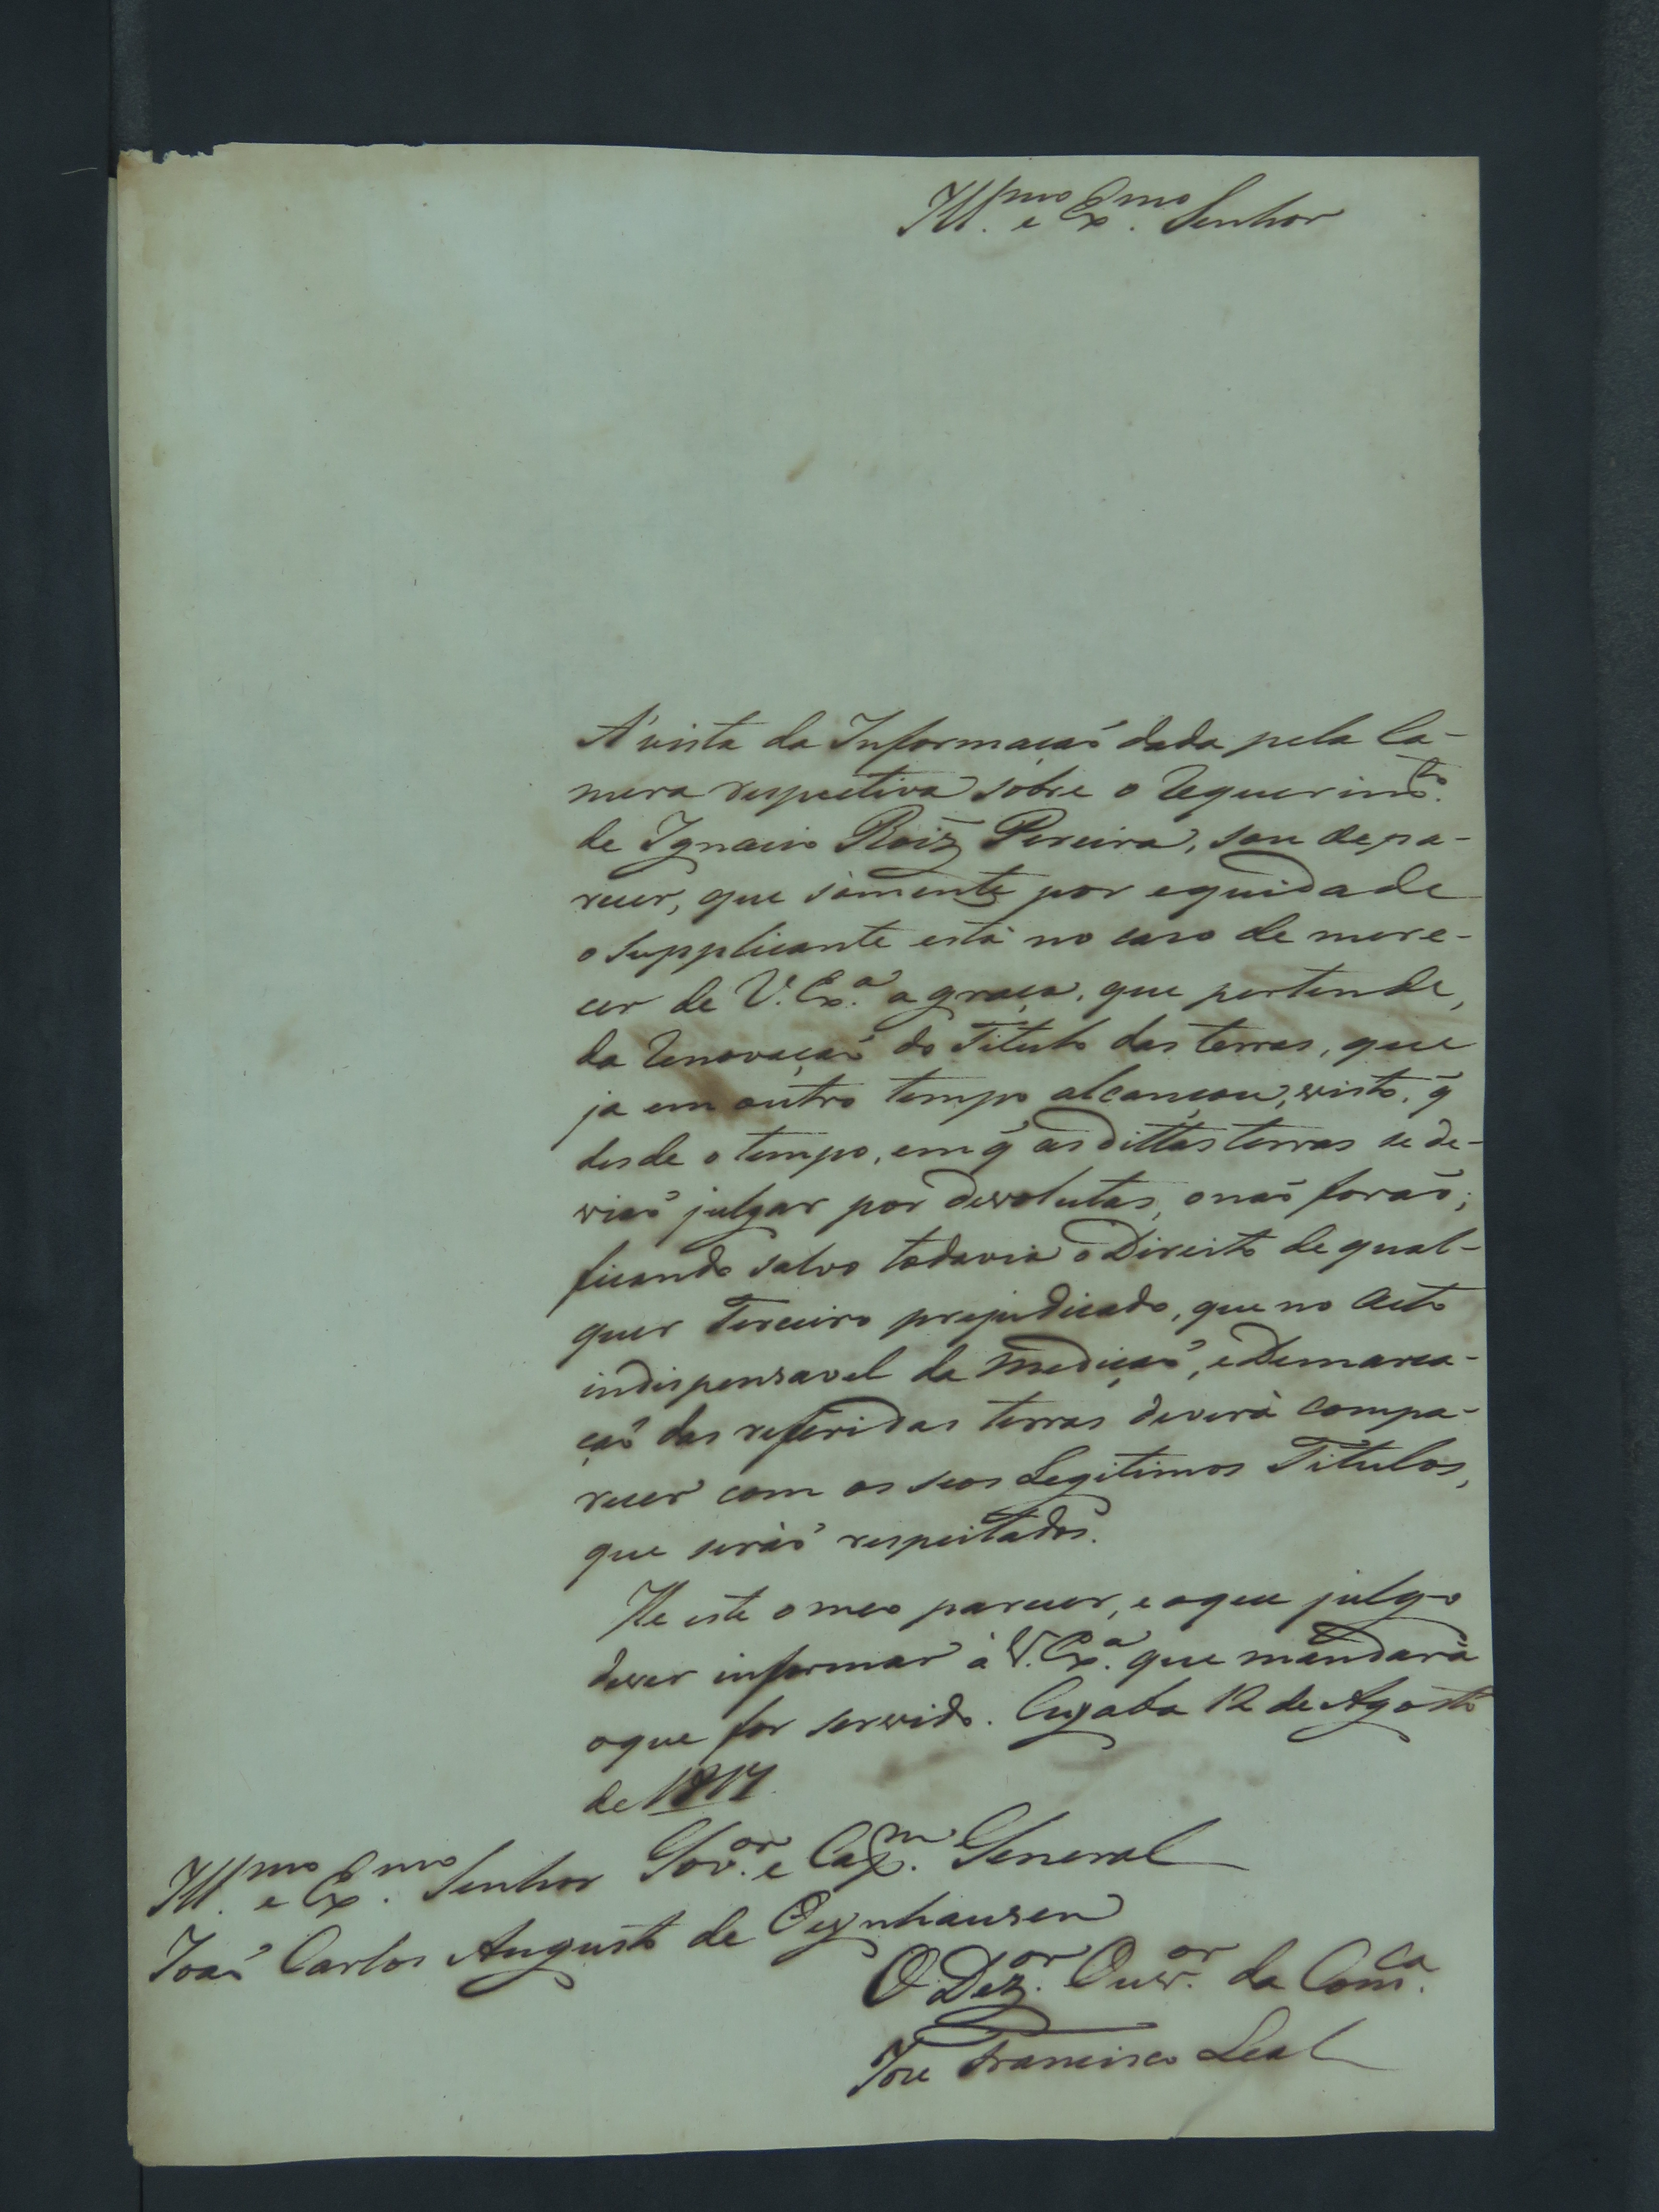 Ill.mo e Ex.mo Senhor
A' vista da Informaçaõ dada pela Ca-
mera respectiva sobre o Requerim.to
de Ignacio Roiz Pereira, sou de pa-
recer, que sómente por equidade
o Supplicante está no caso de mere-
cer de V. Ex.a a graça, que pertende,
da Renovaçaõ do Titulo das terras, que
ja em outro tempo alcançou, visto, q̃
desde o tempo, em q̃ as dittas terras se de-
viaõ julgar por devolutas, o naõ foraõ;
ficando salvo todavia o Direito de qual-
quer Terceiro prejudicado, que no Acto
indispensavel da Mediçaõ, e Demarca-
çaõ das referidas terras deverá compa-
recer com os seos Legitimos Titulos,
que seráõ respeitados.
He este o meo parecer, e oque julgo
dever informar á V. Ex.a que mandará
oque for servido. Cuyaba 12 de Agosto
de 1817
Ill.mo e Ex.mo Senhor Gov.or e Cap.m General
Joaõ Carlos Augusto de Oeynhausen
O Dez.or Ouv.or da Com.ca
Joze Francisco Leal